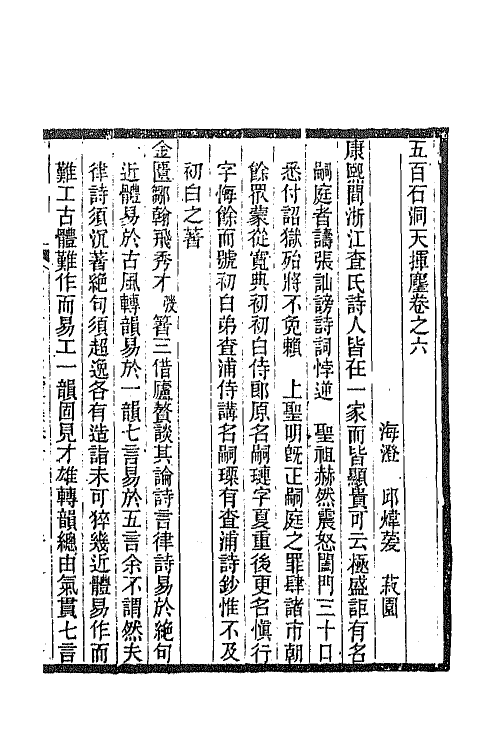 五百石洞天揮麈卷之六
海澄 邱煒萲 菽園
康熙間浙江查氏詩人皆在一家而皆顯貴可云極盛詎有名
嗣庭者譸張訕謗詩詞悖逆 聖祖赫然震怒闔門三十口
悉付詔獄殆將不免賴 上聖明旣正嗣庭之罪肆諸市朝
餘眾蒙從寬典初初白侍郎原名嗣璉字夏重後更名愼行
字悔餘而號初白弟查浦侍講名嗣瑮有查浦詩鈔惟不及
初白之著
金匱鄒翰飛秀才弢 箸三借廬贅談其論詩言律詩易於絶句
近體易於古風轉韻易於一韻七言易於五言余不謂然夫
律詩須沉著絶句須超逸各有造詣未可猝幾近體易作而
難工古體難作而易工一韻固見才雄轉韻總由氣貫七言